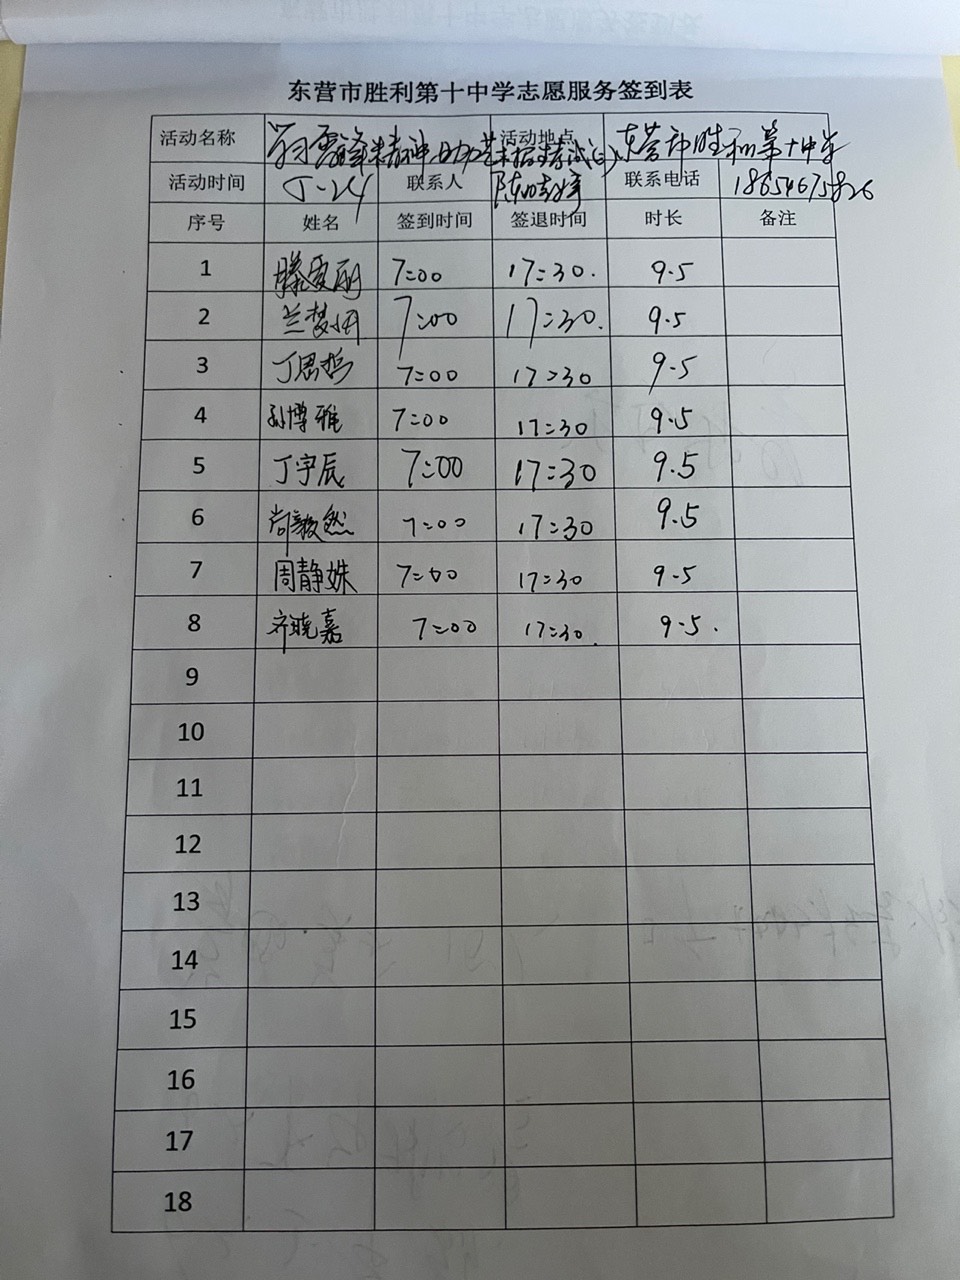 东营市胜利第十中学志愿服务签到表
活动名称 学习雷锋精神 助力艺术 活动地点 东营市胜利第十中学
活动时间 5-24 联系人 联系电话 18654675826
序号 姓名 签到时间 签退时间 时长 备注
1 滕雯丽 7:00 17:30. 9.5
2 兰梦 7:00 17:30. 9.5
3 丁思哲 7:00 17:30 9.5
4 孙博雅 7:00 17:30 9.5
5 丁宇辰 7:00 17:30 9.5
6 尚毅然 7:00 17:30 9.5
7 周静姝 7:00 17:30 9.5
8 齐晓嘉 7:00 17:30. 9.5.
9
10
11
12
13
14
15
16
17
18